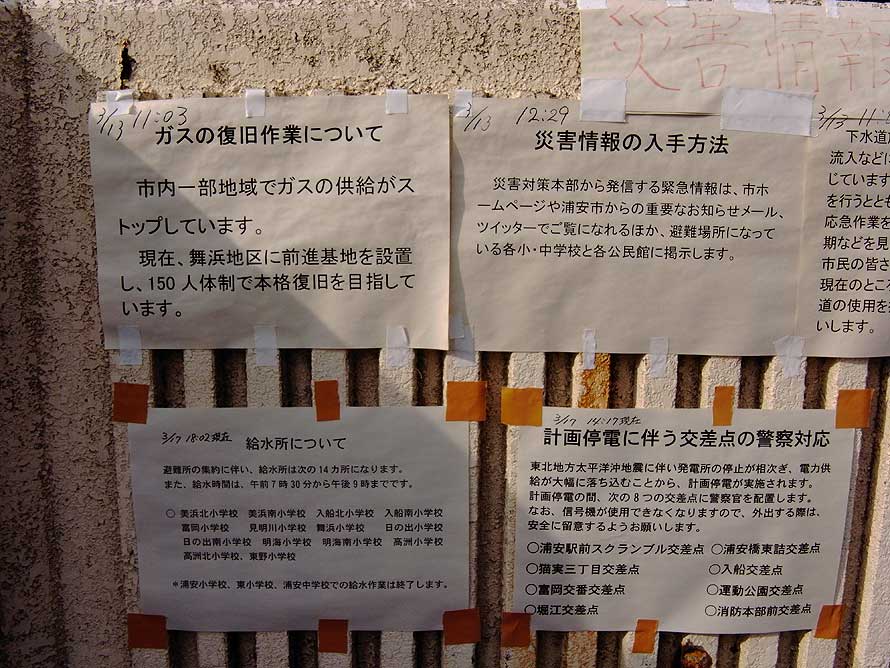 災害情報
3/13 11:03
ガスの復旧作業について
市内一部地域でガスの供給がス
トップしています。
現在、舞浜地区に前進基地を設置
し、150人体制で本格復旧を目指して
います。
3/13 12:29
災害情報の入手方法
災害対策本部から発信する緊急情報は、市ホ
ームページや浦安市からの重要なお知らせメール、
ツイッターでご覧になれるほか、避難場所になって
いる各小・中学校と各公民館に掲示します。
3/13 11:
下水道
流入など
じています
を行うととも
応急作業を
期などを見
市民の皆さ
現在のところ
道の使用を
いします。
3/17 18:02現在
給水所について
避難所の集約に伴い、給水所は次の14カ所になります。
また、給水時間は、午前7時30分から午後9時までです。
○ 美浜北小学校 美浜南小学校 入船北小学校 入船南小学校
富岡小学校 見明川小学校 舞浜小学校 日の出小学校
日の出南小学校 明海小学校 明海南小学校 高洲小学校
高洲北小学校、東野小学校
*浦安小学校、東小学校、浦安中学校での給水作業は終了します。
3/17 14:17現在
計画停電に伴う交差点の警察対応
東北地方太平洋沖地震に伴い発電所の停止が相次ぎ、電力供
給が大幅に落ち込むことから、計画停電が実施されます。
計画停電の間、次の8つの交差点に警察官を配置します。
なお、信号機が使用できなくなりますので、外出する際は、
安全に留意するようお願いします。
○浦安駅前スクランブル交差点 ○浦安橋東詰交差点
○猫実三丁目交差点 ○入船交差点
○富岡交番交差点 ○運動公園交差点
○堀江交差点 ○消防本部前交差点